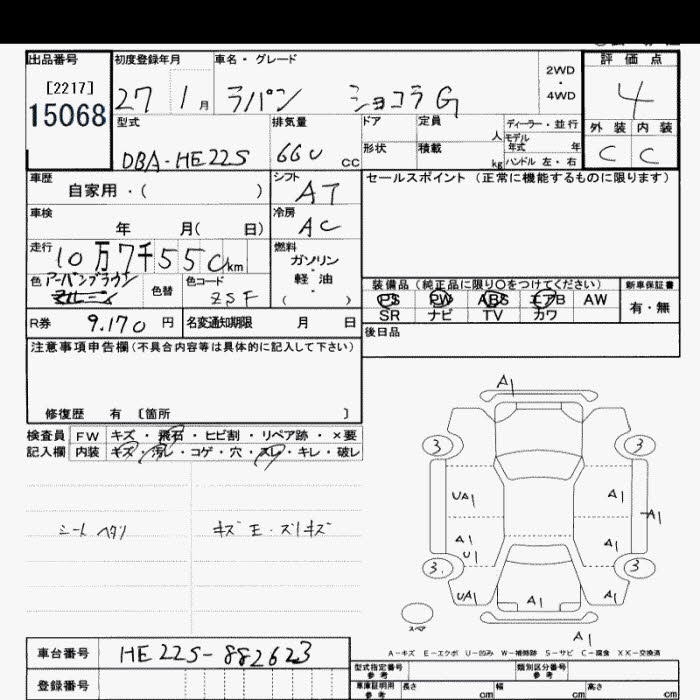 出品番号
[2217]
15068
初度登録年月
27 1 月
車名・グレード
ラパン ショコラ G
2WD
・
4WD
評価点
4
外装 内装
C C
型式
DBA-HE22S
排気量
660 cc
ドア 定員 人
形状 積載 kg
ディーラー・並行
モデル年式 年
ハンドル 左・右
車歴
自家用・( )
シフト
AT
セールスポイント (正常に機能するものに限ります)
車検
年 月( 日)
冷房
AC
走行
10万7千550km
燃料
ガソリン
・
軽油
( )
色 アーバンブラウン
色替
色コード
ZSF
装備品(純正品に限り○をつけてください)
PS PW ABS エアB AW
SR ナビ TV カワ
新車保証書
有・無
R券 9.170 円
名変通知期限 月 日
後日品
注意事項申告欄(不具合内容等は具体的に記入して下さい)
修復歴 有 〔箇所 〕
検査員 FW キズ・飛石・ヒビ割・リペア跡・×要
記入欄 内装 キズ・汚レ・コゲ・穴・スレ・キレ・破レ
シート ヘタリ
A1
3 3
UA1 A1
A1
A1 U1 A1
3 3
UA1 A1 A1
スペア
A1
A-キズ E-エクボ U-凹み W-補修跡 S-サビ C-腐食 XX-交換済
車台番号 HE22S-882623
登録番号
型式指定番号 参考
類別区分番号 参考
車庫証明用 参考 長さ cm 幅 cm 高さ cm